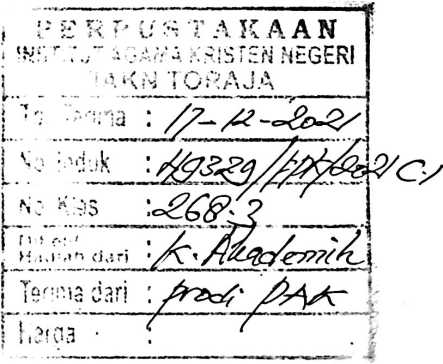 PERPUSTAKAAN
INSTITUT AGAMA KRISTEN NEGERI
IAKN TORAJA
Tgl Terima : 17-12-2021
No Induk : 49329/ /2021 C.1
No Klas : 268.3
Hadiah dari : K. Akademik
Terima dari : prodi PAK
Harga :